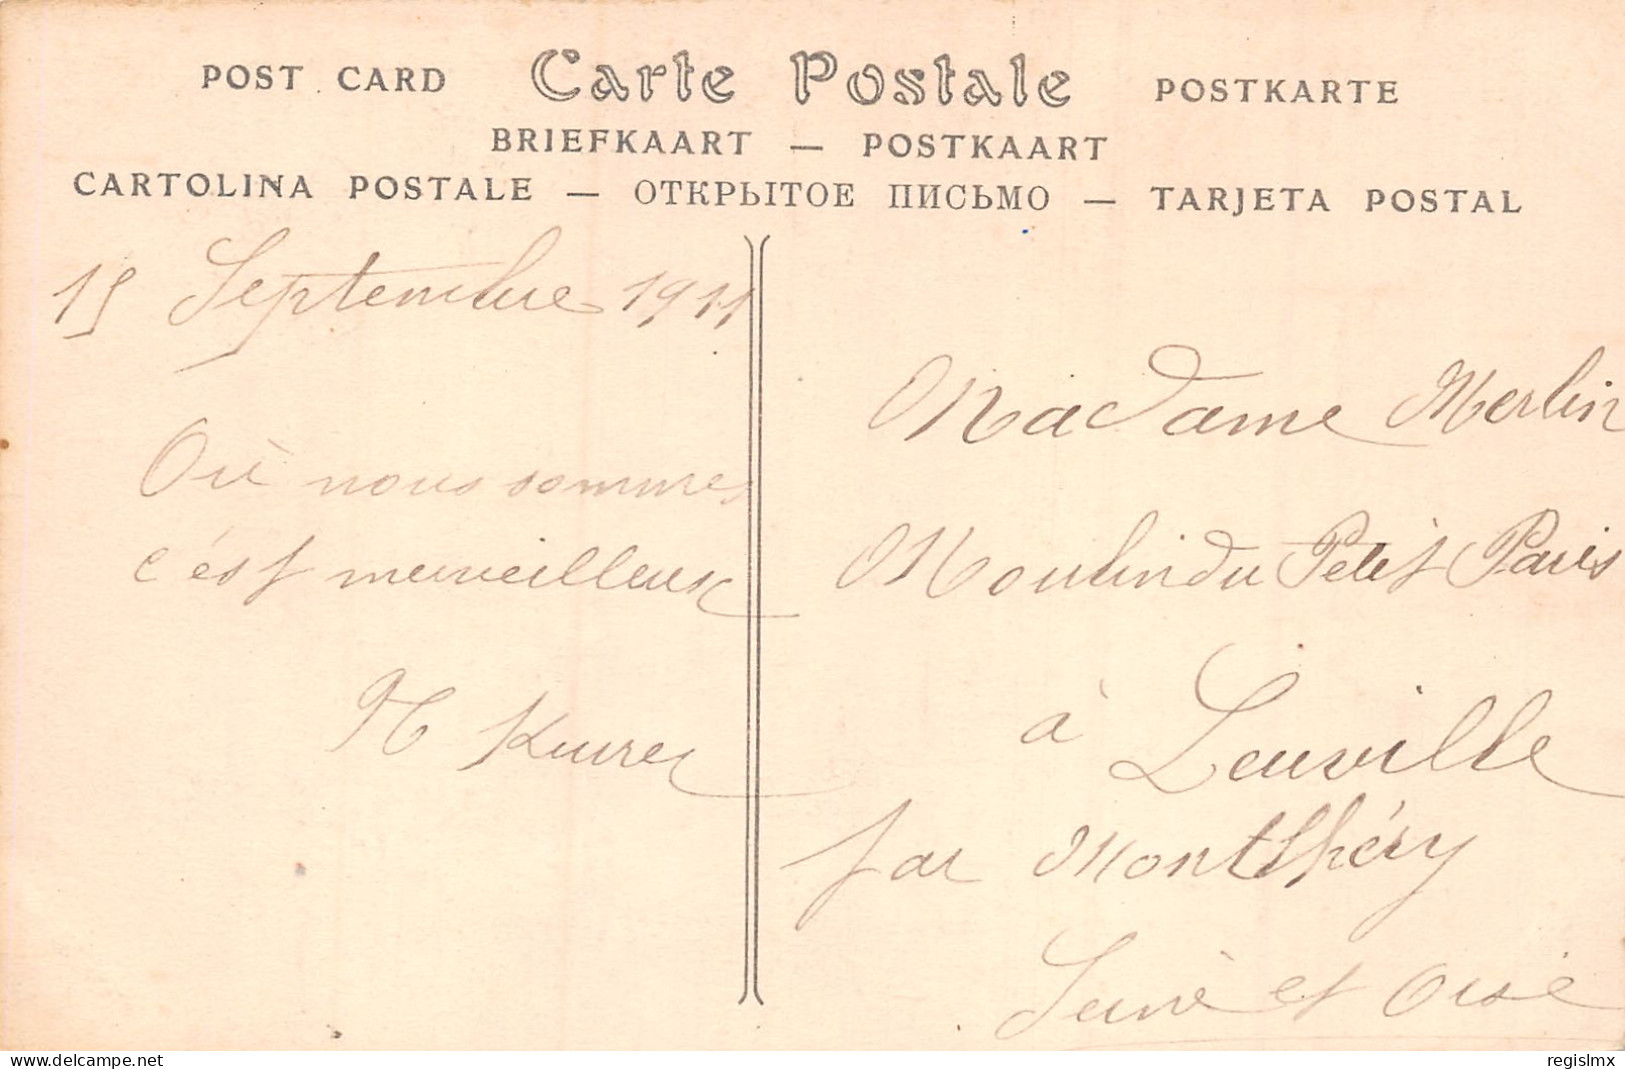 POST CARD Carte Postale POSTKARTE
BRIEFKAART — POSTKAART
CARTOLINA POSTALE — ОТКРЫТОЕ ПИСЬМО — TARJETA POSTAL
15 Septembre 1911
Où nous sommes
c'est merveilleux
Madame Merlin
Moulin du Petit Paris
à Leuville
par Montlhéry
Seine et Oise
www.delcampe.net
regislmx